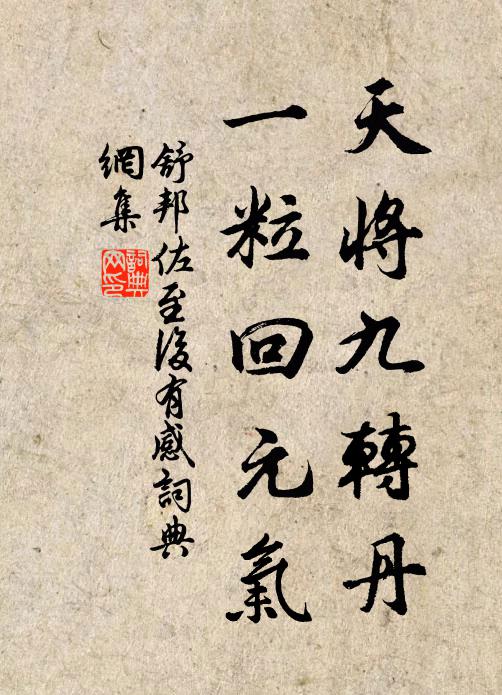 天將九轉丹
一粒回元氣
舒邦佐至後有感詞典
網集
詞典網印